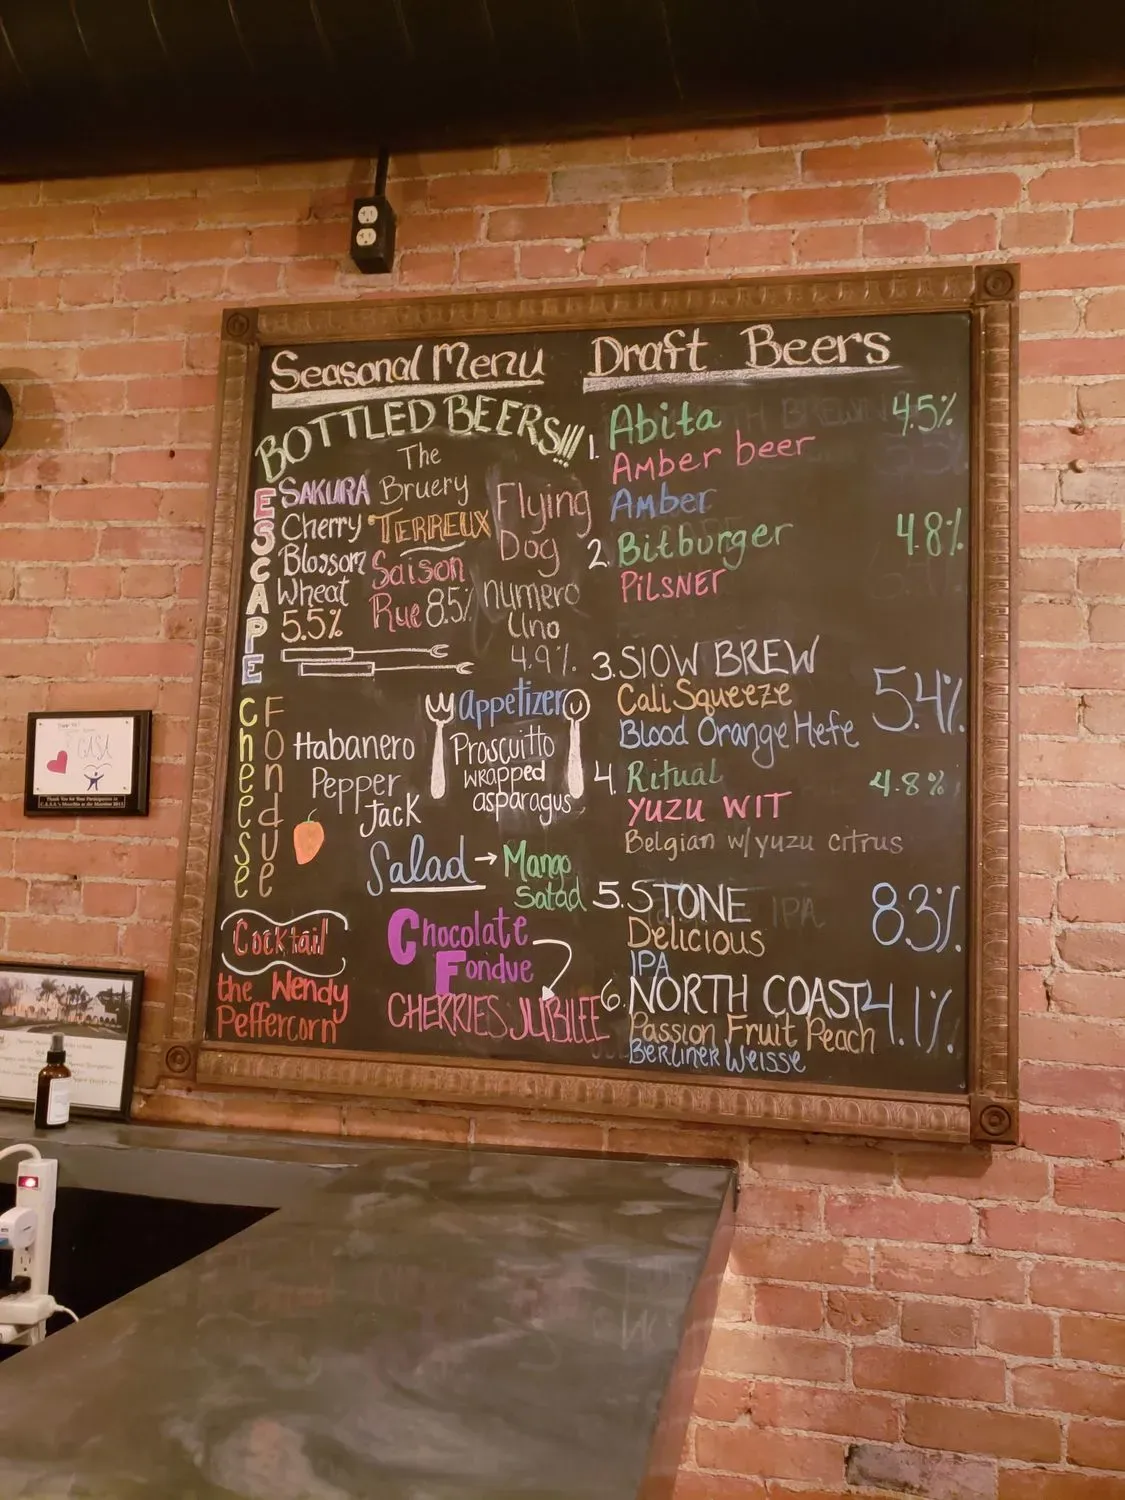 Seasonal Menu
BOTTLED BEERS!!!
ESCAPE
SAKURA
Cherry
Blossom
Wheat
5.5%
The
Bruery
TERREUX
Saison
Rue 8.5%
Flying
Dog
numero
Uno
4.9%
Cheese
Fondue
Habanero
Pepper
Jack
Appetizer
Proscuitto
wrapped
asparagus
Salad → Mango
Salad
Cocktail
the Wendy
Peffercorn
Chocolate
Fondue
CHERRIES JUBILEE
Draft Beers
1. Abita 4.5%
Amber beer
Amber
2. Bitburger 4.8%
PiLSNEr
3. SlOW BREW
Cali Squeeze 5.4%
Blood Orange Hefe
4. Ritual 4.8%
YUZU WIT
Belgian w/yuzu citrus
5. STONE 8.3%
Delicious
IPA
6. NORTH COAST 4.1%
Passion Fruit Peach
Berliner Weisse
CASA